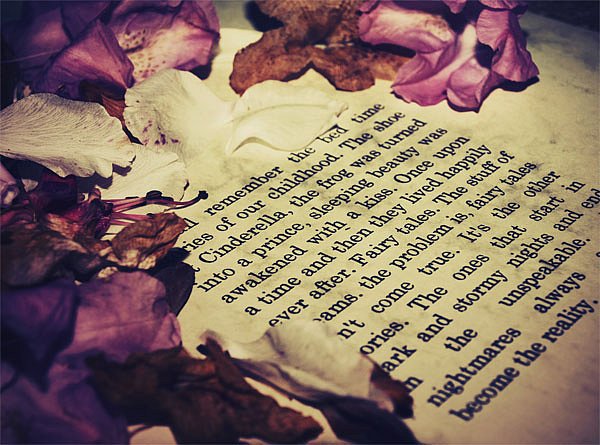 remember the bed time
ries of our childhood. The shoe
Cinderella, the frog was turned
into a prince, sleeping beauty was
awakened with a kiss. Once upon
a time and then they lived happily
ever after. Fairy tales. The stuff of
ams. the problem is, fairy tales
n't come true. It's the other
ories. The ones that start in
ark and stormy nights and end
n the unspeakable.
nightmares always
become the reality.